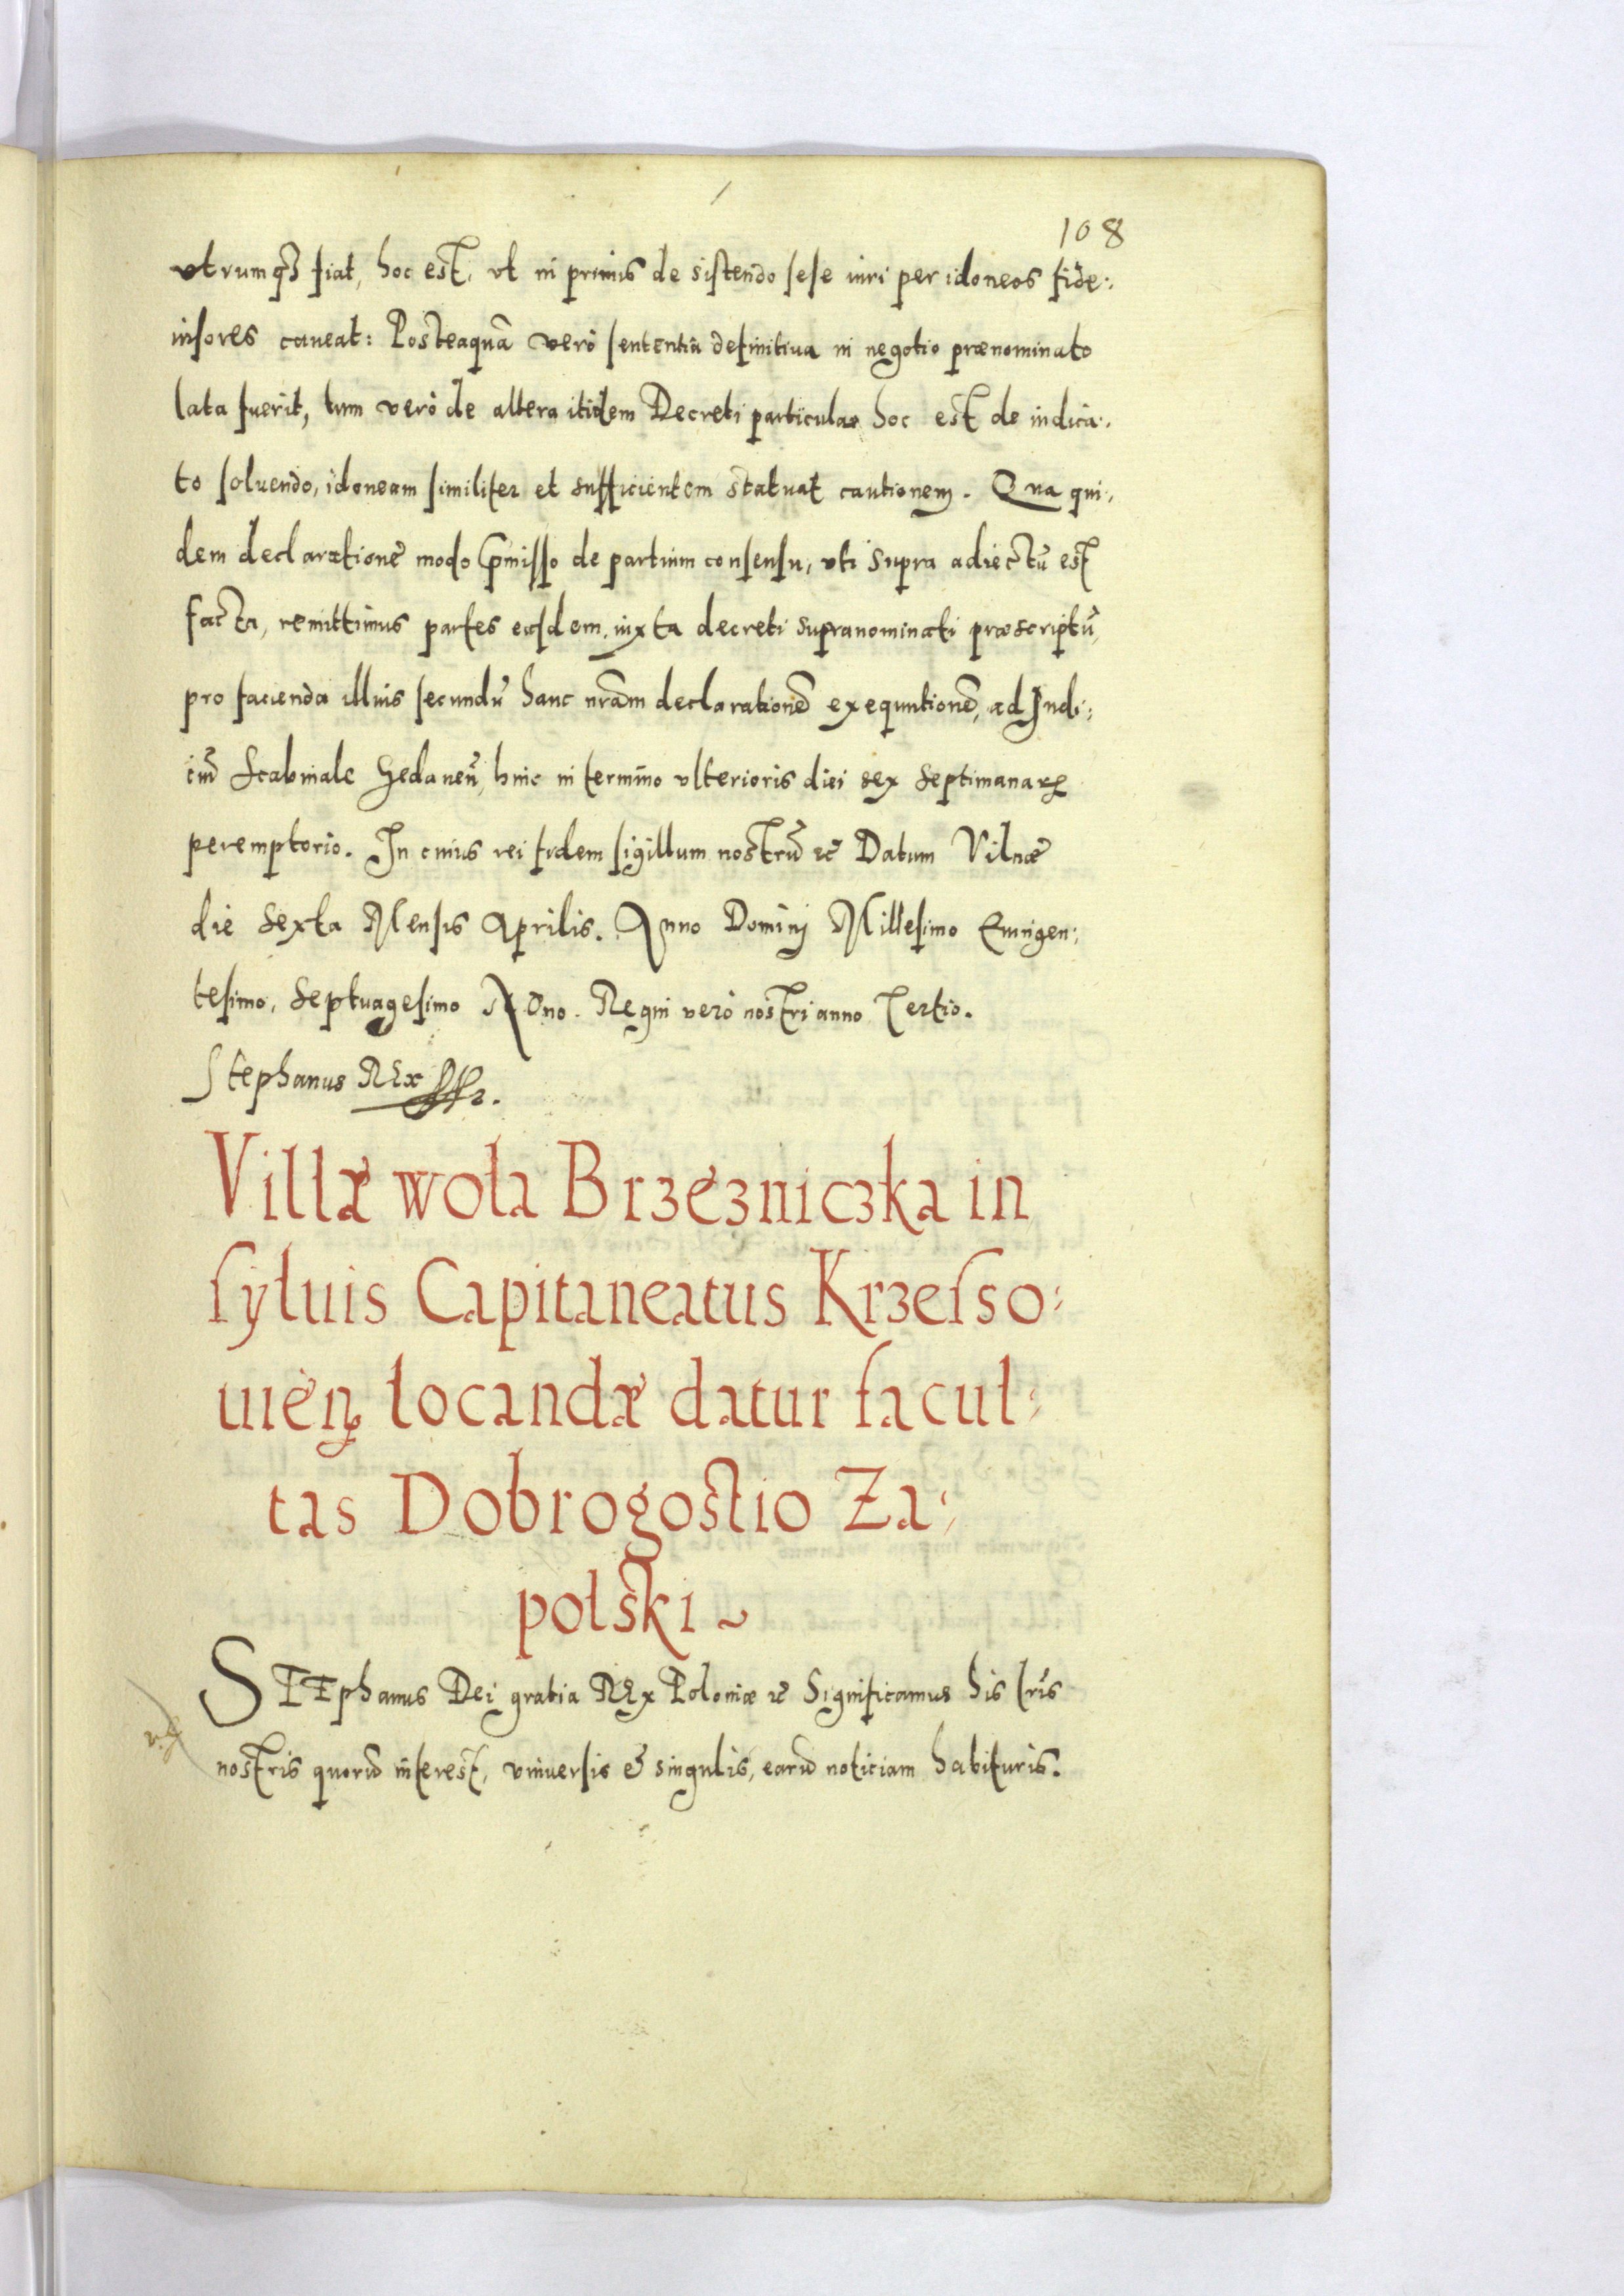 108
vtrumq₃ fiat, hoc est, vt in primis de sistendo sese iuri per idoneos fide:
iusores caueat: Posteaquã verò sententia definitiua in negotio prænominato
lata fuerit, tum verò de altera itidem Decreti particulae hoc est de iudica:
to soluendo, idoneam similiter et sufficientem statuat cautionem. Qua qui:
dem declaratione modo p̃misso de partium consensu, vti supra adiectũ est
facta, remittimus partes easdem, iuxta decreti supranominati præscriptũ,
pro facienda illius secundũ hanc nr̃am declarationẽ exequutionẽ, ad Iudi:
ciũ Scabinale Gedaneñ, hinc in termino vlterioris diei sex septimanarꝝ
peremptorio. In cuius rei fidem sigillum nostrũ &c̃ Datum Vilnæ
die Sexta Mensis Aprilis. Anno Dominj Millesimo Quingen:
tesimo, Septuagesimo NOno. Regni verò nostri anno Tertio.
Stephanus REx
Villæ wola Brzezniczka in
syluis Capitaneatus Krzesso:
uieñ locandæ datur facul:
tas Dobrogostio Za:
polski ~
STEphanus Dei gratia REx Poloniæ &c̃ Significamus his lr̃is
nostris quorũ interest, vniuersis & singulis, earũ noticiam habituris.